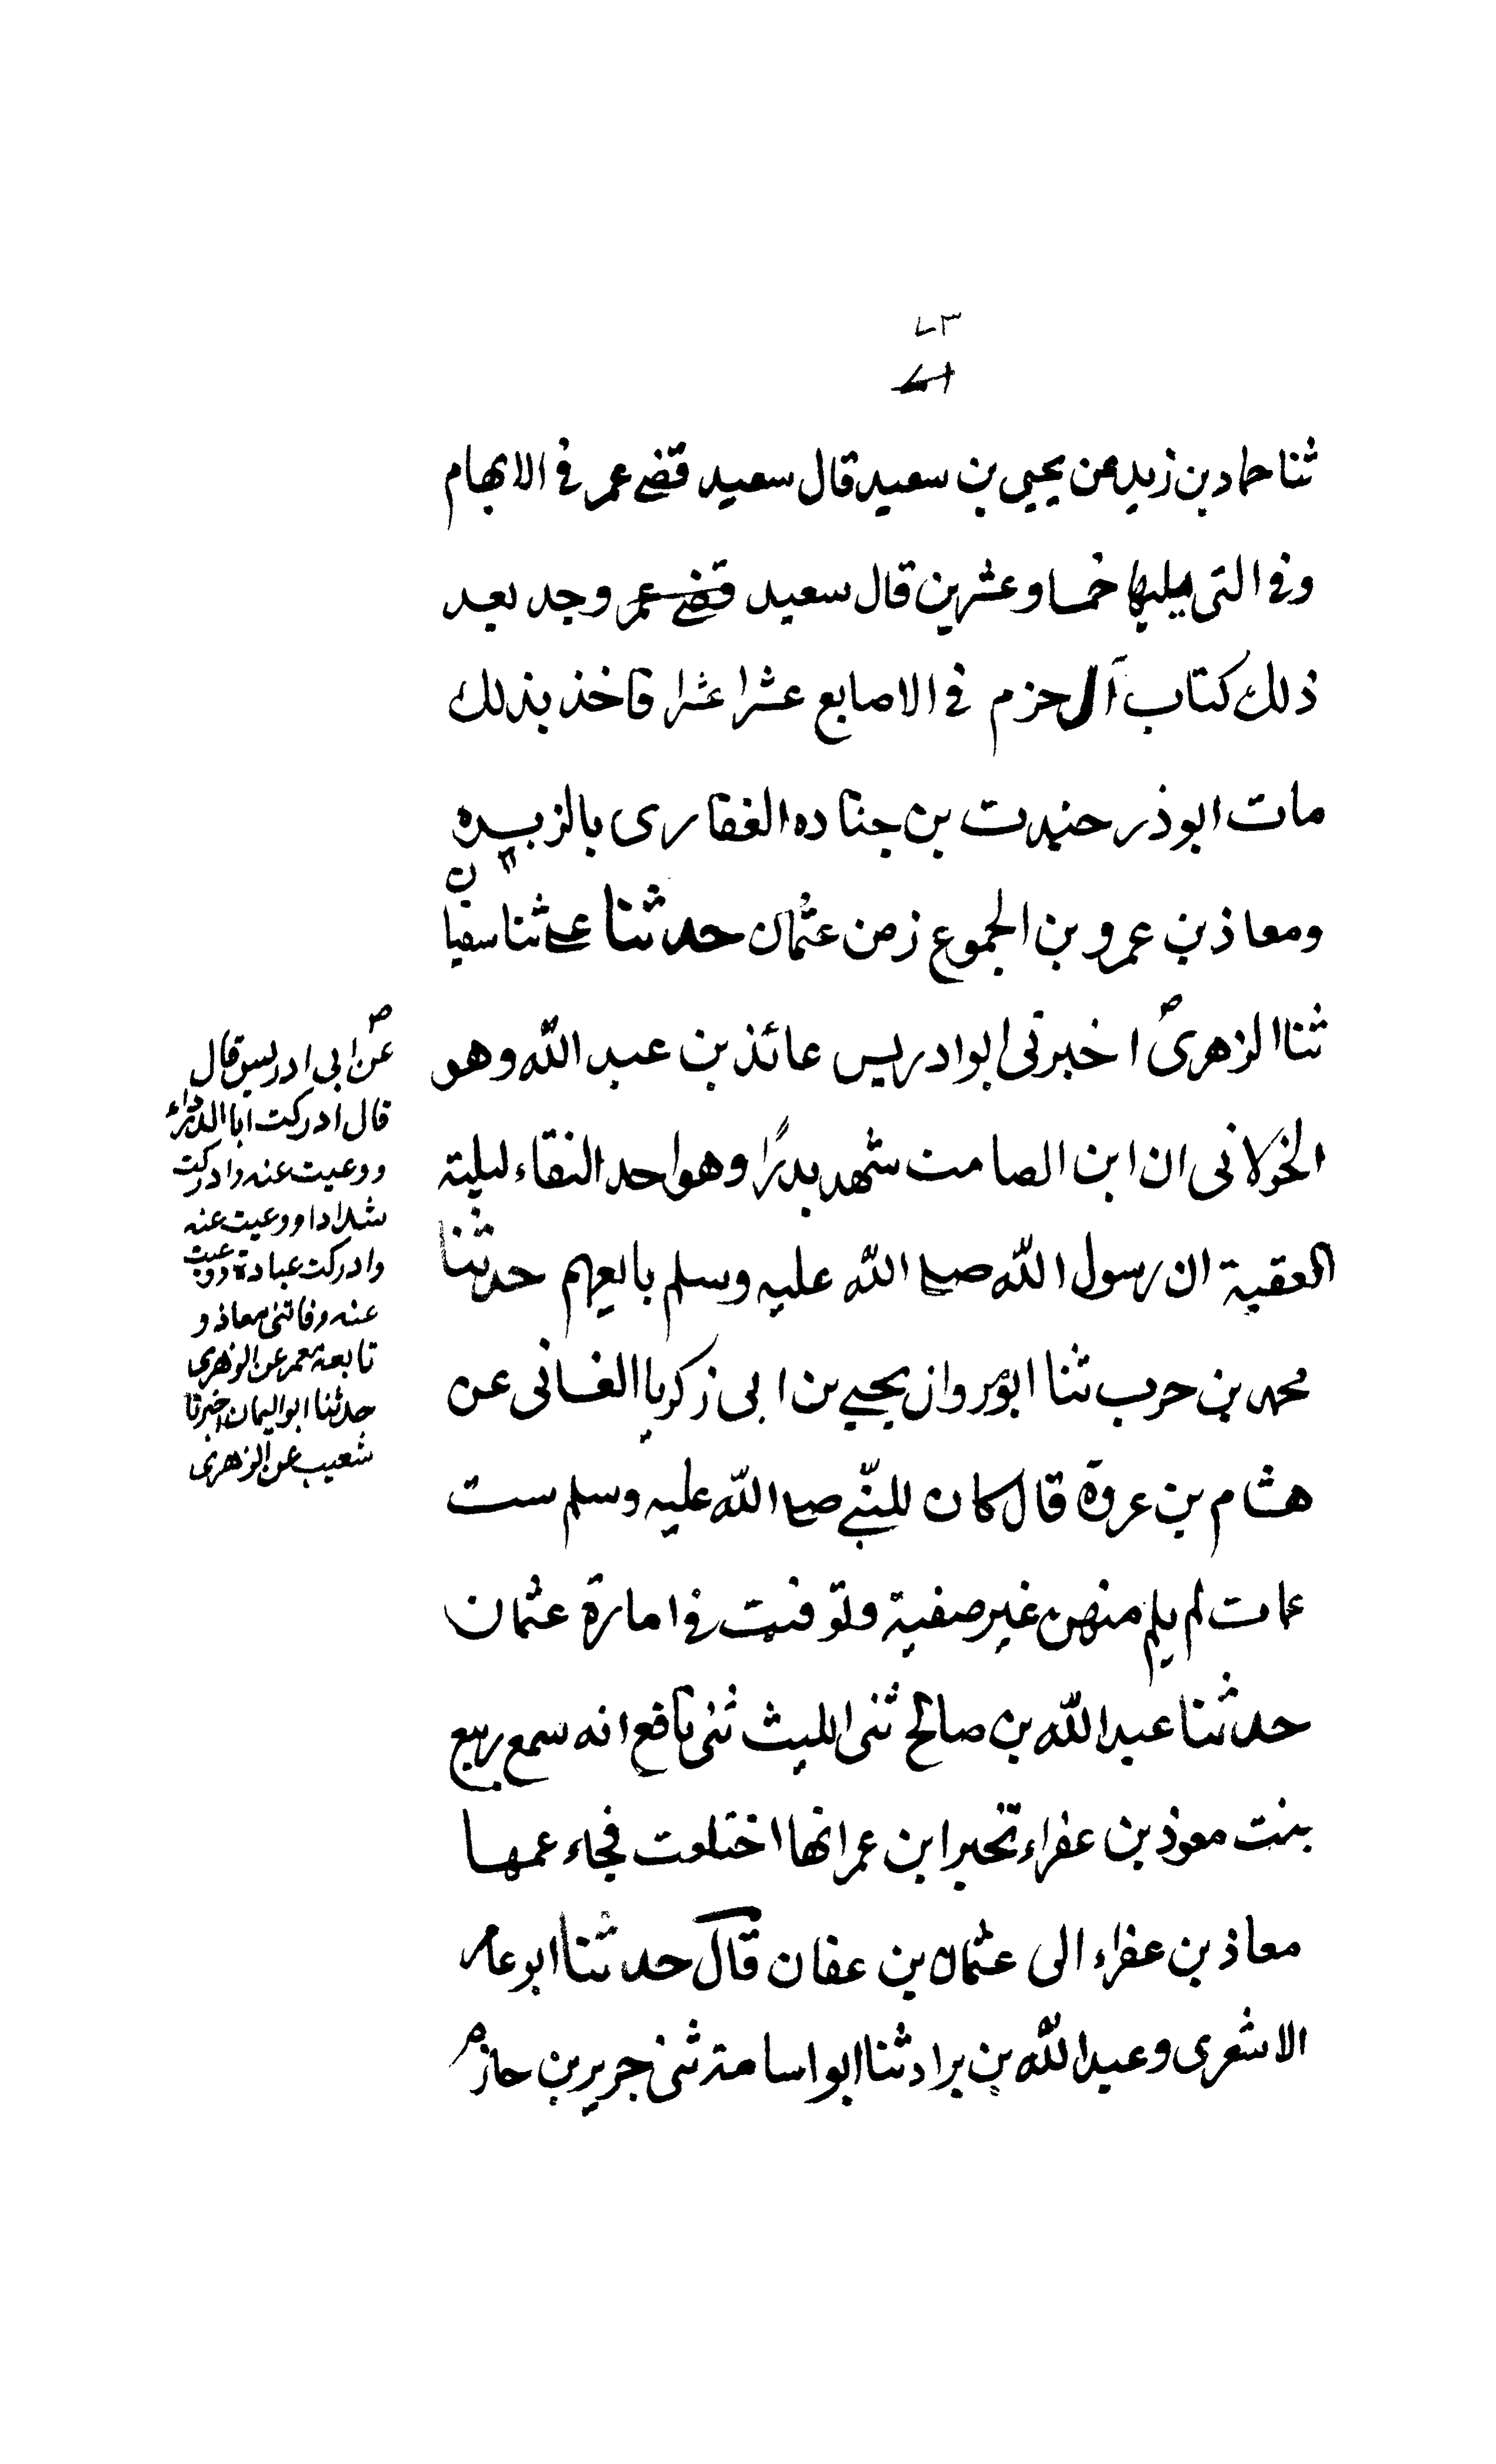 ٧٣
ثنا حماد بن زيد عن يحيى بن سعيد قال سعيد قضى عمر في الابهام
وفي التى يليها خمسا وعشرين قال سعيد قضى عمر وجد بعد
ذلك كتاب آل حزم في الاصابع عشرا عشرا فاخذ بذلك
مات ابوذر جندب بن جناده الغفارى بالربذه
ومعاذ بن عمرو بن الجموع زمن عثمان حدثنا على ثنا سفيان
ثنا الزهرى اخبرنى ابو ادريس عائذ بن عبد الله وهو
الخولانى ان ابن الصامت شهد بدرًا وهو احد النقباء ليلة
العقبة ان رسول الله صلى الله عليه وسلم بايعهم حدثنا
محمد بن حرب ثنا ابو مروان يحيى بن ابى زكريا الغسانى عن
هشام بن عروة قال كان للنبى صلى الله عليه وسلم ست
عمات لم يسلم منهن غير صفية وتوفيت في امارة عثمان
حدثنا عبد الله بن صالح ثنى الليث ثنى نافع انه سمع ربيع
بنت معوذ بن عفراء تخبر ابن عمر انها اختلعت فجاء عمها
معاذ بن عفراء الى عثمان بن عفان قال حدثنا ابو عامر
الاشعرى وعبد الله بن براد ثنا ابو اسامة ثنى جرير بن حازم
ص
عن ابى ادريس قال
قال ادركت ابا الدرداء
ووعيت عنه وادركت
شدادا ووعيت عنه
وادركت عبادة ووعيت
عنه وفاتنى معاذ و
تابعه معمر عن الزهرى
حدثنا ابو اليمان اخبرنا
شعيب عن الزهرى